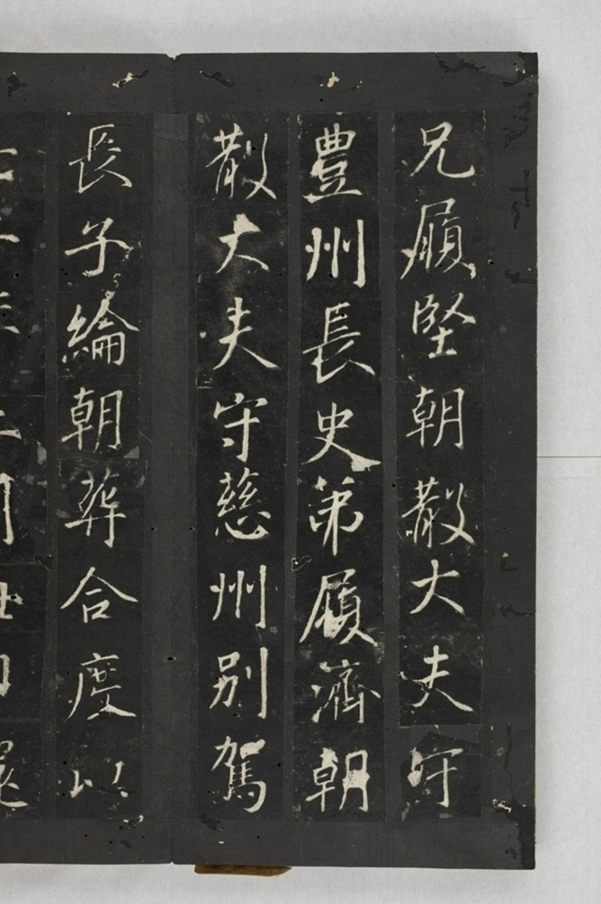 兄履堅朝散大夫守
豊州長史苐履濟朝
散大夫守慈州別駕
長子綸朝葬合度以